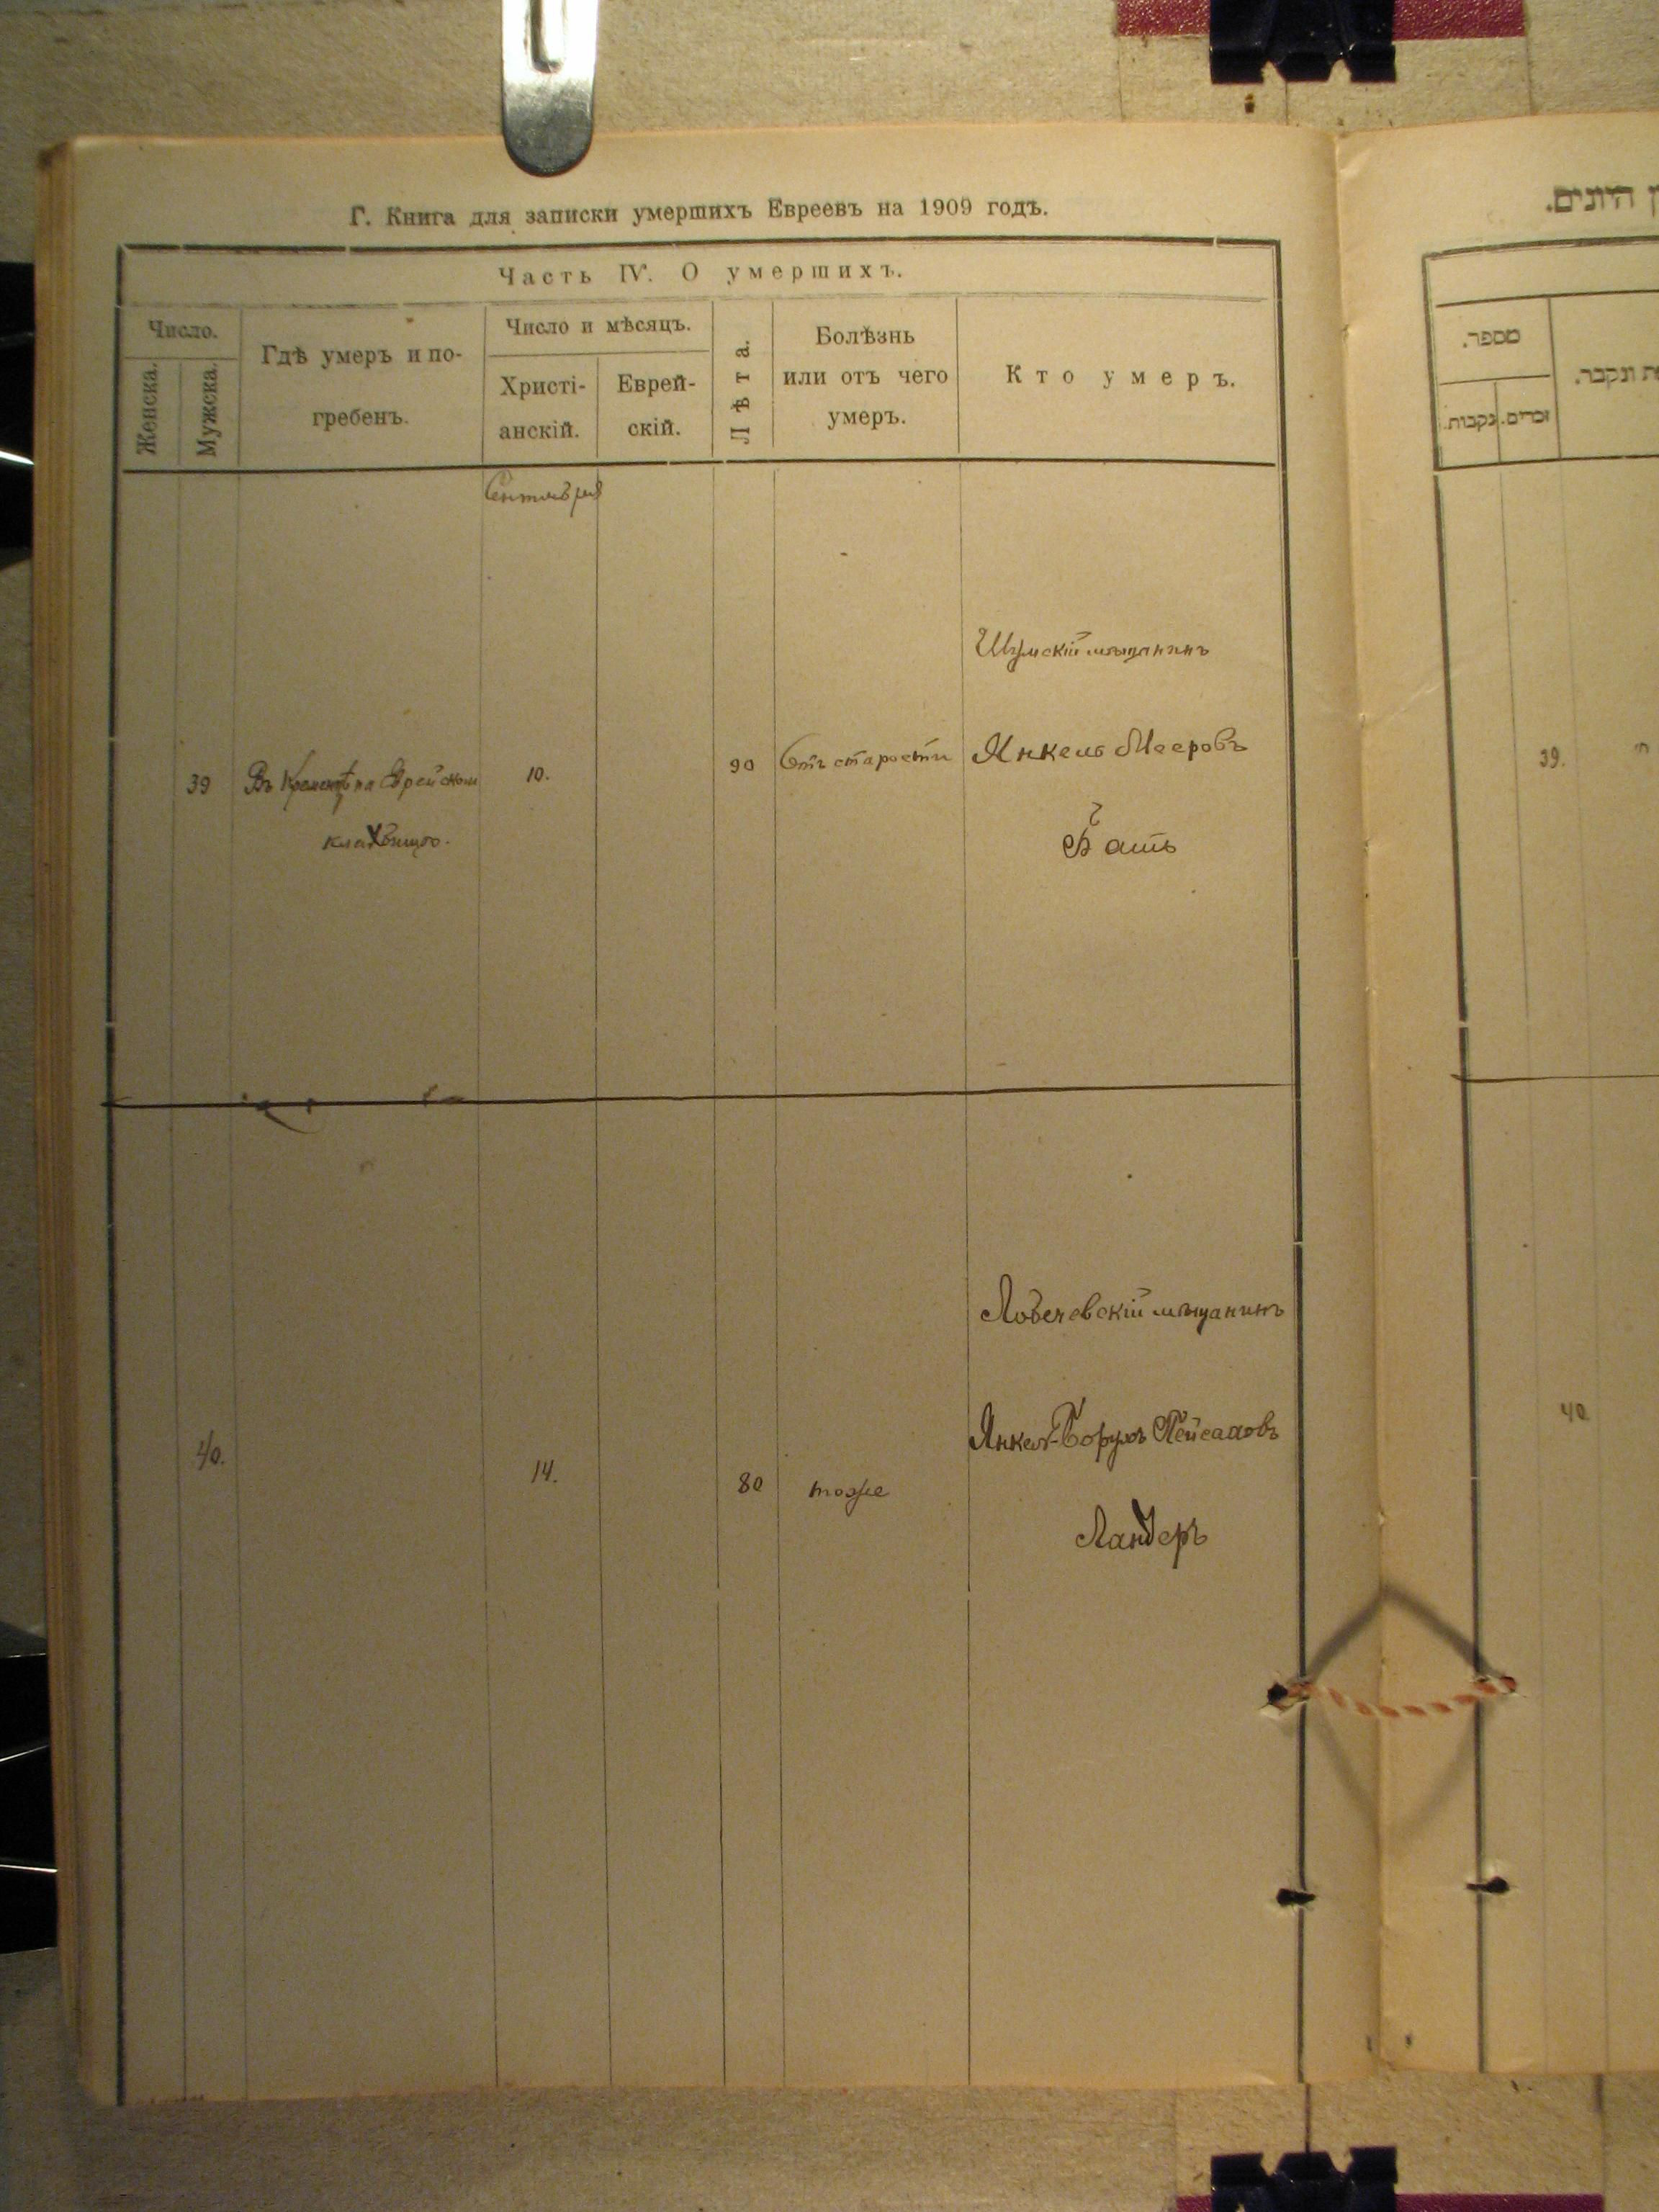 Г. Книга для записки умершихъ Евреевъ на 1909 годъ.
Часть IV. О умершихъ.
Число.
Женска.
Мужска.
Гдѣ умеръ и по-
гребенъ.
Число и мѣсяцъ.
Христі-
анскій.
Еврей-
скій.
Лѣта.
Болѣзнь
или отъ чего
умеръ.
Кто умеръ.
Сентября
39
Въ Кременцѣ на Еврейском
кладбищѣ.
10.
90
Отъ старости
Шумскій мѣщанинъ
Янкель Мееровъ
Батъ
40.
14.
80
тоже
мѣщанинъ
Янкель-Борухъ Пейсаховъ
Ландеръ
היונים.
מספר.
נקבות.
זכרים.
ונקבר.
39.
40